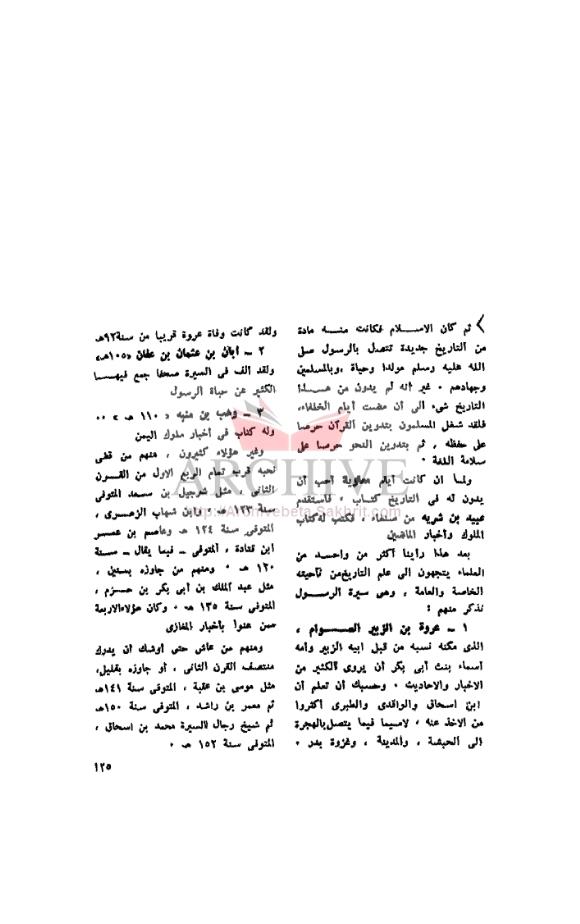 ثم كان الاسلام فكانت منه مادة
من التاريخ جديدة تتصل بالرسول صلى
الله عليه وسلم مولدا وحياة ، وبالمسلمين
وجهادهم · غير أنه لم يدون من هذا
التاريخ شىء الى أن مضت أيام الخلفاء،
فلقد شغل المسلمون بتدوين القرآن حرصا
على حفظه ، ثم بتدوين النحو حرصا على
سلامة اللغة ·
ولما ان كانت أيام معاوية أحب أن
يدون له فى التاريخ كتاب ، فاستقدم
عبيد بن شريه من صنعاء ، فكتب له كتاب
الملوك وأخبار الماضين
بعد هذا رأينا أكثر من واحد من
العلماء يتجهون الى علم التاريخ من ناحيته
الخاصة والعامة ، وهى سيرة الرسول
نذكر منهم :
١ ـ عروة بن الزبير العوام ،
الذى مكنه نسبه من قبل أبيه الزبير وأمه
أسماء بنت أبى بكر أن يروى الكثير من
الاخبار والاحاديث · وحسبك أن تعلم أن
ابن اسحاق والواقدى والطبرى أكثروا
من الاخذ عنه ، لاسيما فيما يتصل بالهجرة
الى الحبشة ، والمدينة ، وغزوة بدر ·
ولقد كانت وفاة عروة قريبا من سنة ٩٢هـ
٢ ـ أبان بن عثمان بن عفان «١٠٥هـ»
ولقد ألف فى السيرة صحفا جمع فيها
الكثير عن حياة الرسول
٣ ـ وهب بن منبه « ١١٠ هـ » ··
وله كتاب فى أخبار ملوك اليمن
وغير هؤلاء كثيرون ، منهم من قضى
نحبه قرب تمام الربع الاول من القرن
الثانى ، مثل شرحبيل بن سعد المتوفى
سنة ١٢٣ هـ ، وابن شهاب الزهرى ،
المتوفى سنة ١٢٤ هـ وعاصم بن عمر
ابن قتادة ، المتوفى ـ فيما يقال ـ سنة
١٢٠ هـ · ومنهم من جاوزه بسنين ،
مثل عبد الملك بن أبى بكر بن حزم ،
المتوفى سنة ١٣٥ هـ · وكان هؤلاء الاربعة
ممن عنوا بأخبار المغازى
ومنهم من عاش حتى أوشك أن يدرك
منتصف القرن الثانى ، أو جاوزه بقليل،
مثل موسى بن عقبة ، المتوفى سنة ١٤١هـ
ثم معمر بن راشد ، المتوفى سنة ١٥٠هـ
ثم شيخ رجال السيرة محمد بن اسحاق ،
المتوفى سنة ١٥٢ هـ ·
١٢٥
ARCHIVE
http://Archivebeta.Sakhrit.com